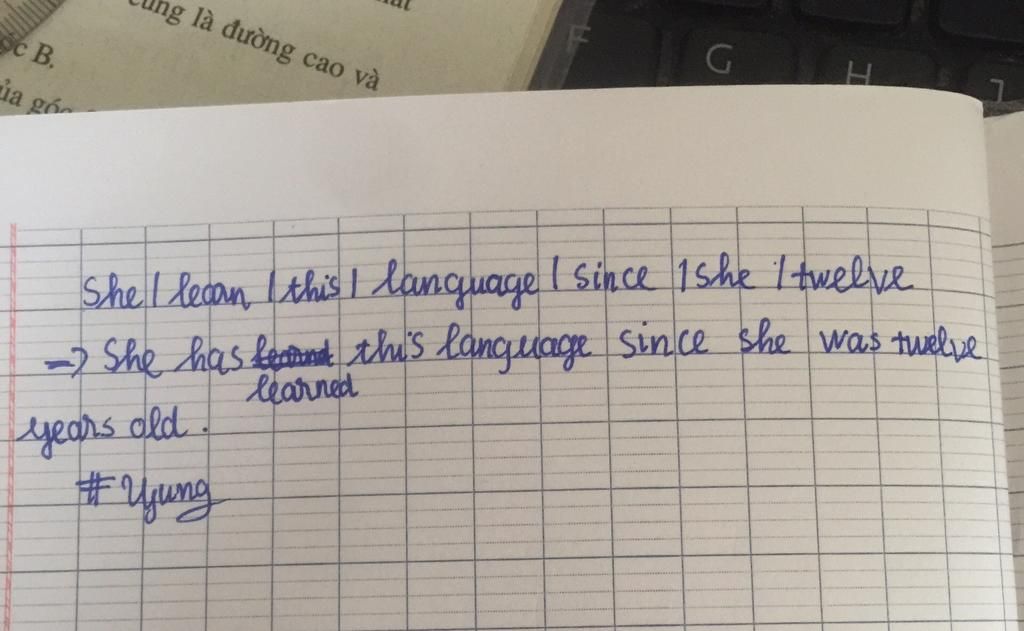 cũng là đường cao và
ốc B.
ủa góc
F G H J
She / learn / this / language / since / she / twelve
→ She has this language since she was twelve
learned
years old.
# Uyung